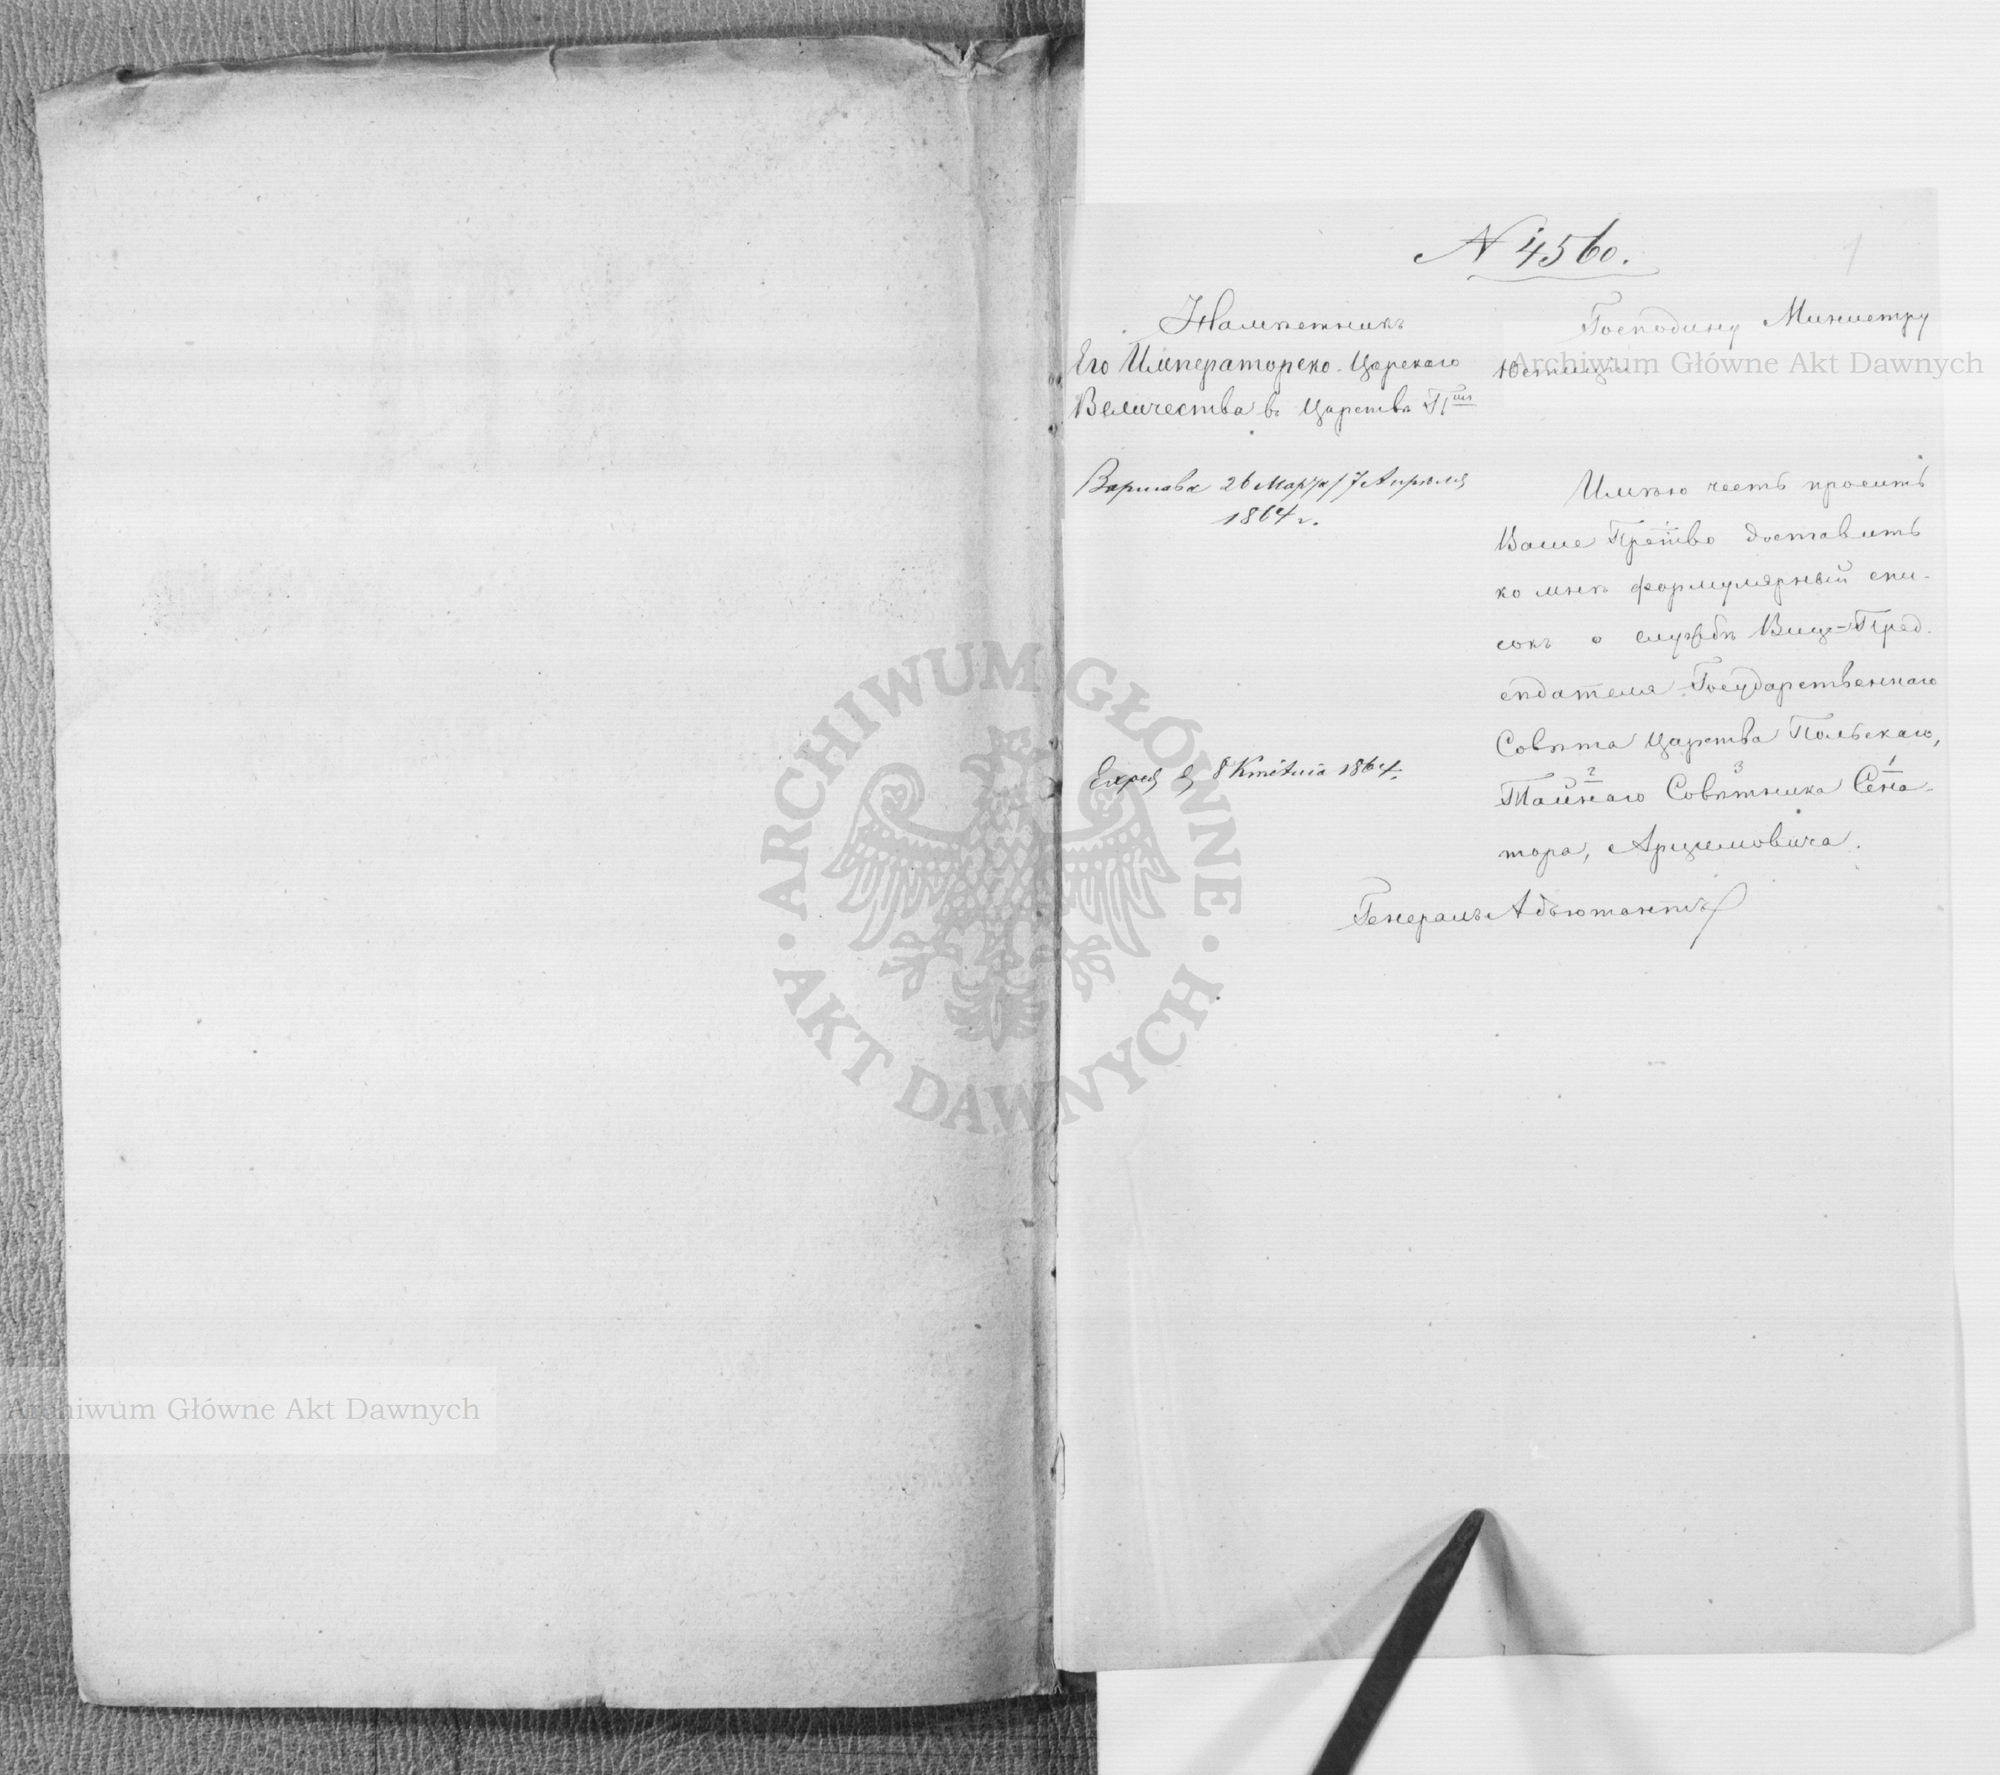 N 4560.
1
Намѣстникъ
Его Императорско-Царскаго
Величества въ Царствѣ П
Варшава 26 Марта/7 Апрѣля
1864 г.
8 Kwietnia 1864.
Господину Министру
Юстиціи.
Имѣю честь просить
Ваше Пре-тво доставить
ко мнѣ формулярный спи-
сокъ о службѣ Вице-Пред-
сѣдателя Государственнаго
Совѣта Царства Польскаго,
2 3 1
Тайнаго Совѣтника Сена-
тора, Арцимовича.
Генералъ-Адъютантъ
Archiwum Główne Akt Dawnych
ARCHIWUM GŁÓWNE AKT DAWNYCH
Archiwum Główne Akt Dawnych